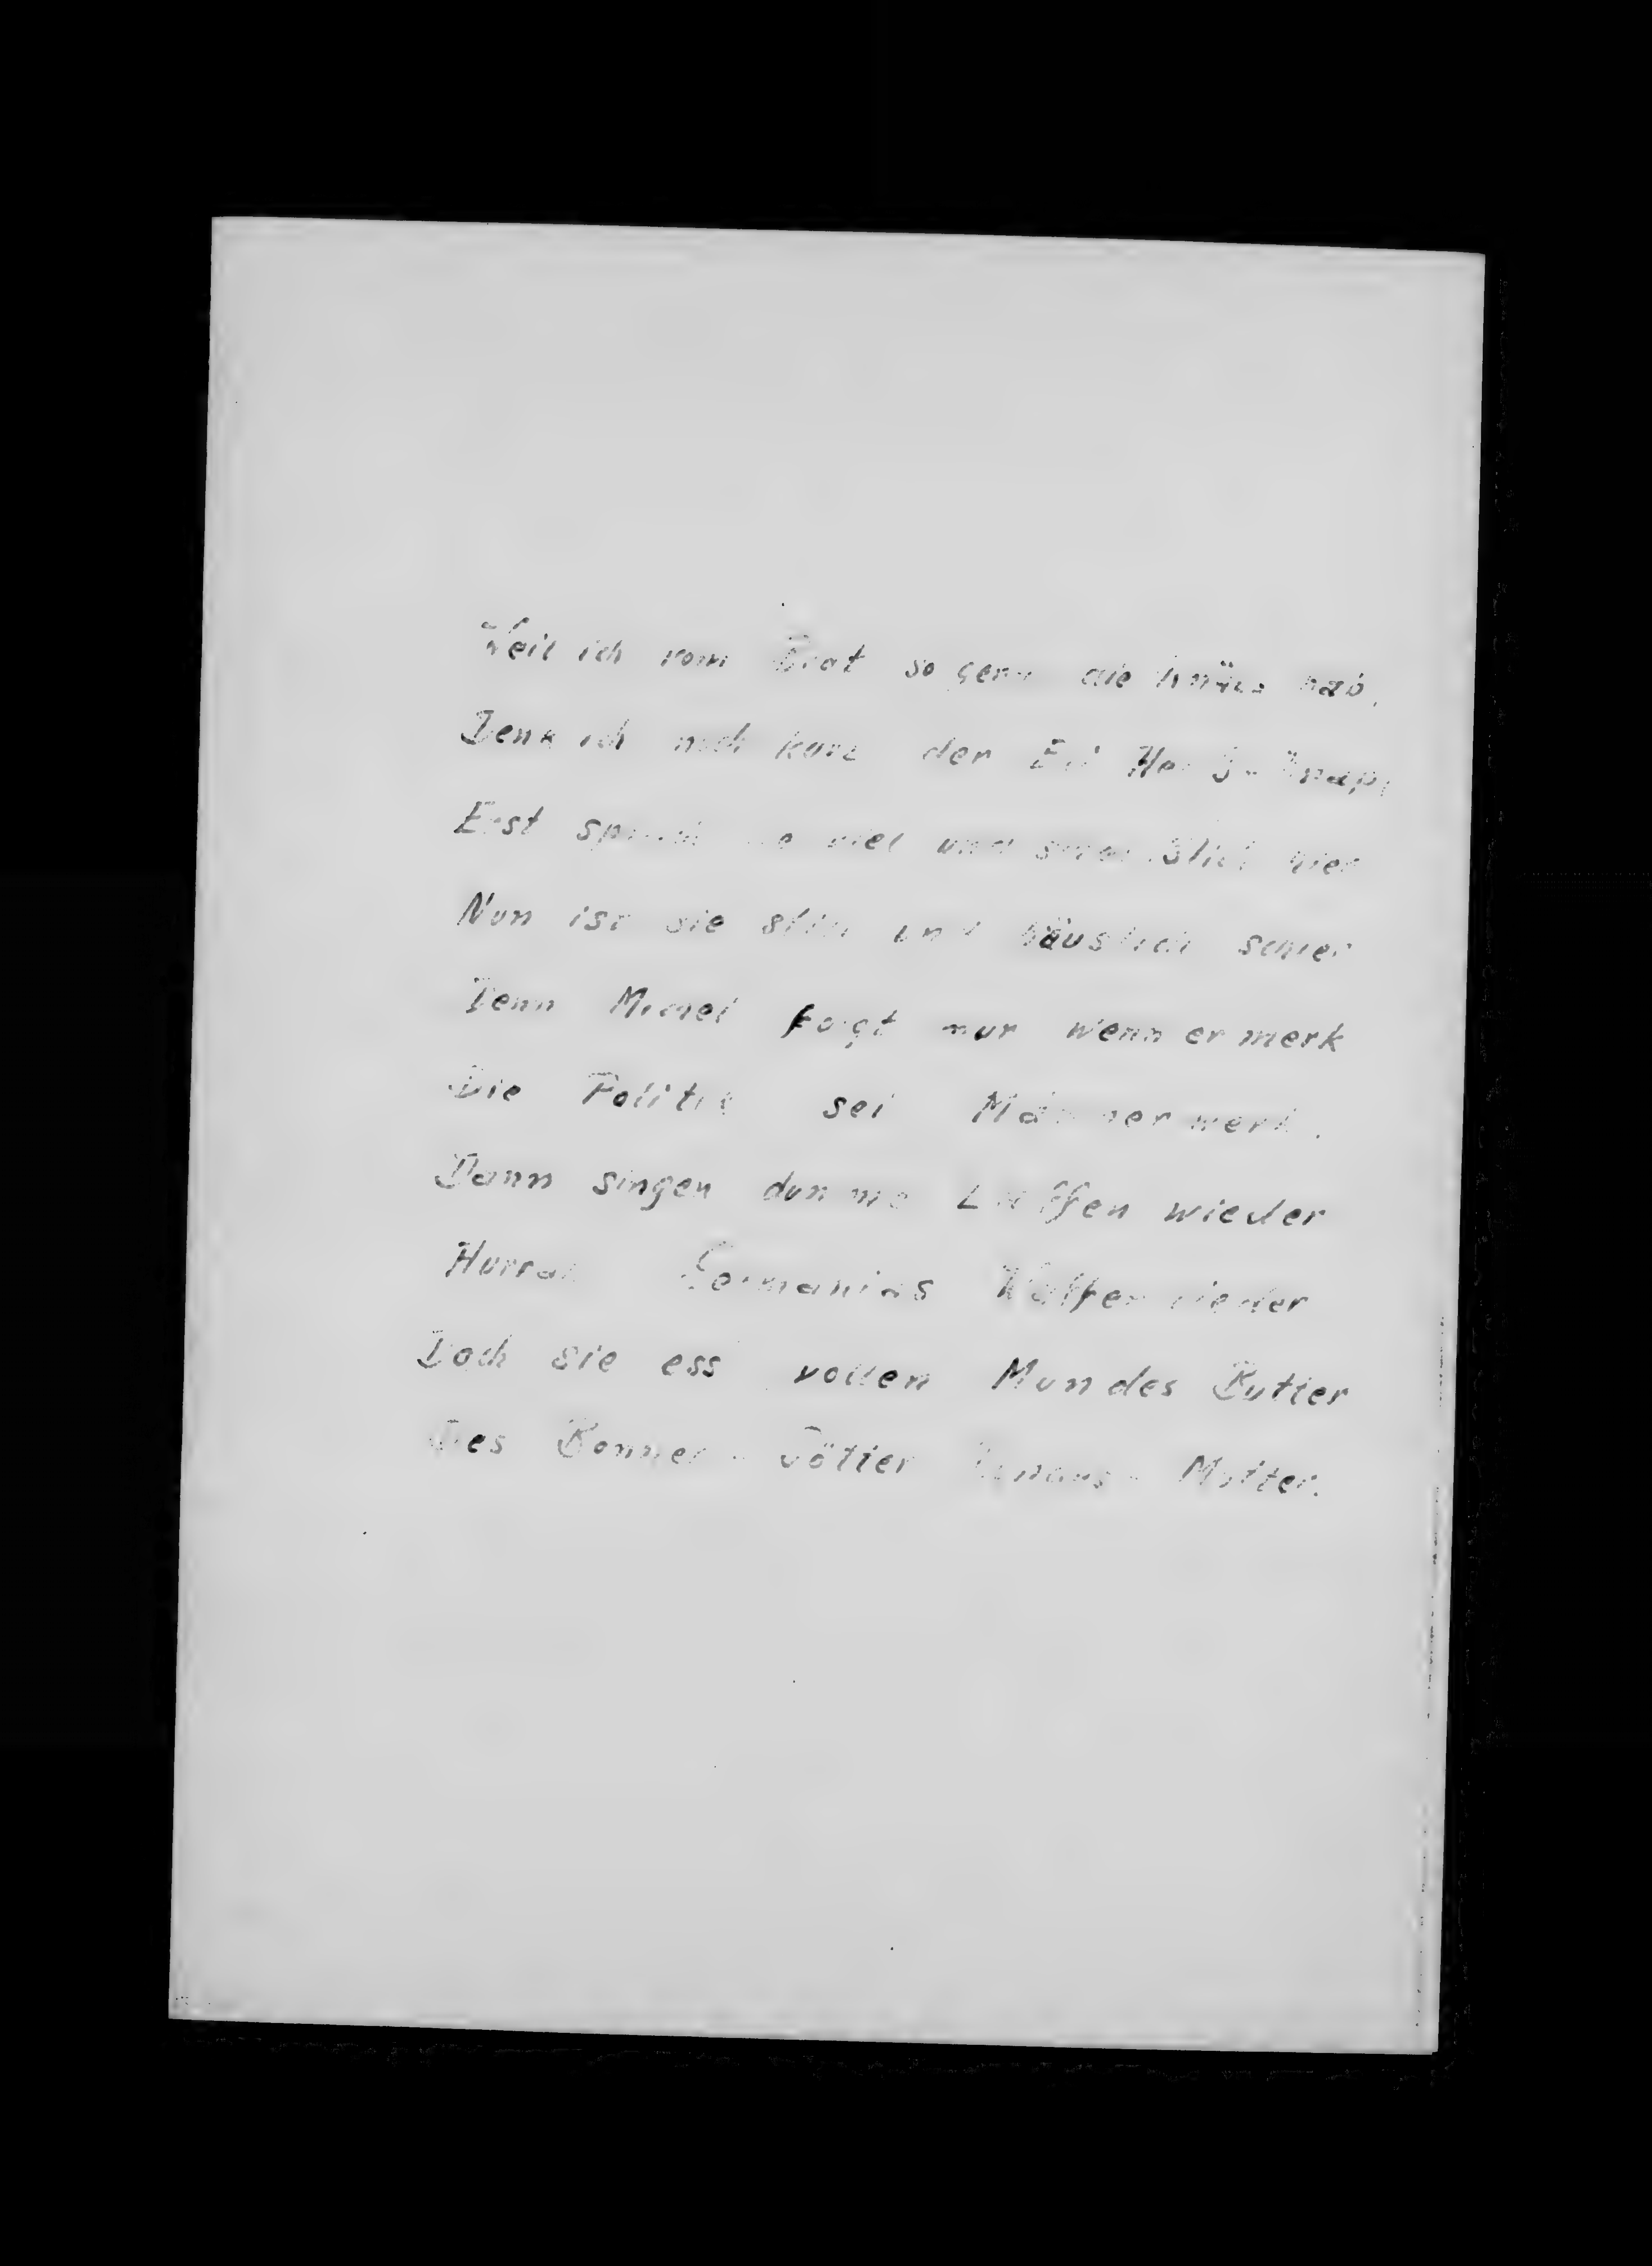 Weil ich vom Brot so gern die hab,
Denk ich noch kurz der
Erst viel und hier
Nun ist sie still und häuslich schier
Denn Michel folgt nur wenn er merk
Die Politik sei Männerwerk.
Dann singen dumme Laffen wieder
Hurrah Germanias Waffenlieder
Doch sie ess vollen Mundes Butter
Des Bonner - Götter - Mutter.